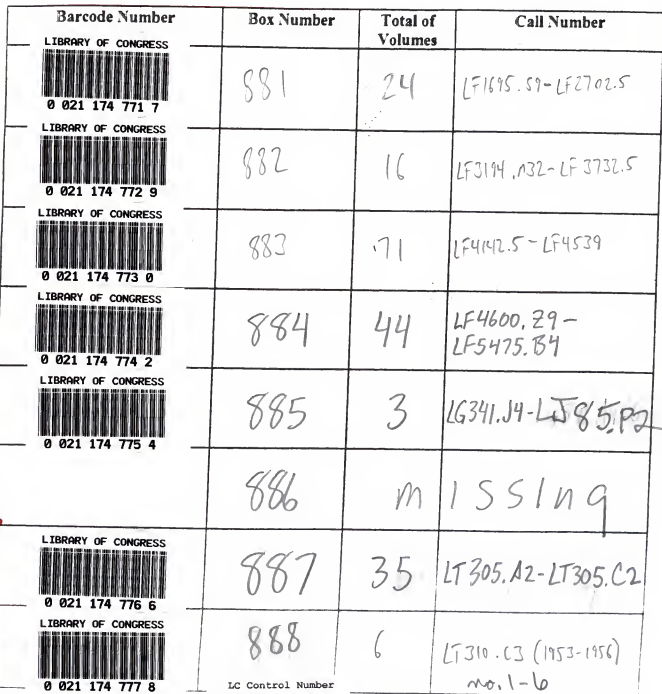 Barcode Number Box Number Total of Volumes Call Number
LIBRARY OF CONGRESS
0 021 174 771 7
881 24 LF1695.S9-LF2702.5
LIBRARY OF CONGRESS
0 021 174 772 9
882 16 LF3194.N32-LF3732.5
LIBRARY OF CONGRESS
0 021 174 773 0
883 71 LF4142.5-LF4539
LIBRARY OF CONGRESS
0 021 174 774 2
884 44 LF4600.Z9-
LF5475.B4
LIBRARY OF CONGRESS
0 021 174 775 4
885 3 LG341.J4-LJ85.P2
886 missing
LIBRARY OF CONGRESS
0 021 174 776 6
887 35 LT305.A2-LT305.C2
LIBRARY OF CONGRESS
0 021 174 777 8
888 6 LT310.C3 (1953-1956)
no. 1-6
LC Control Number